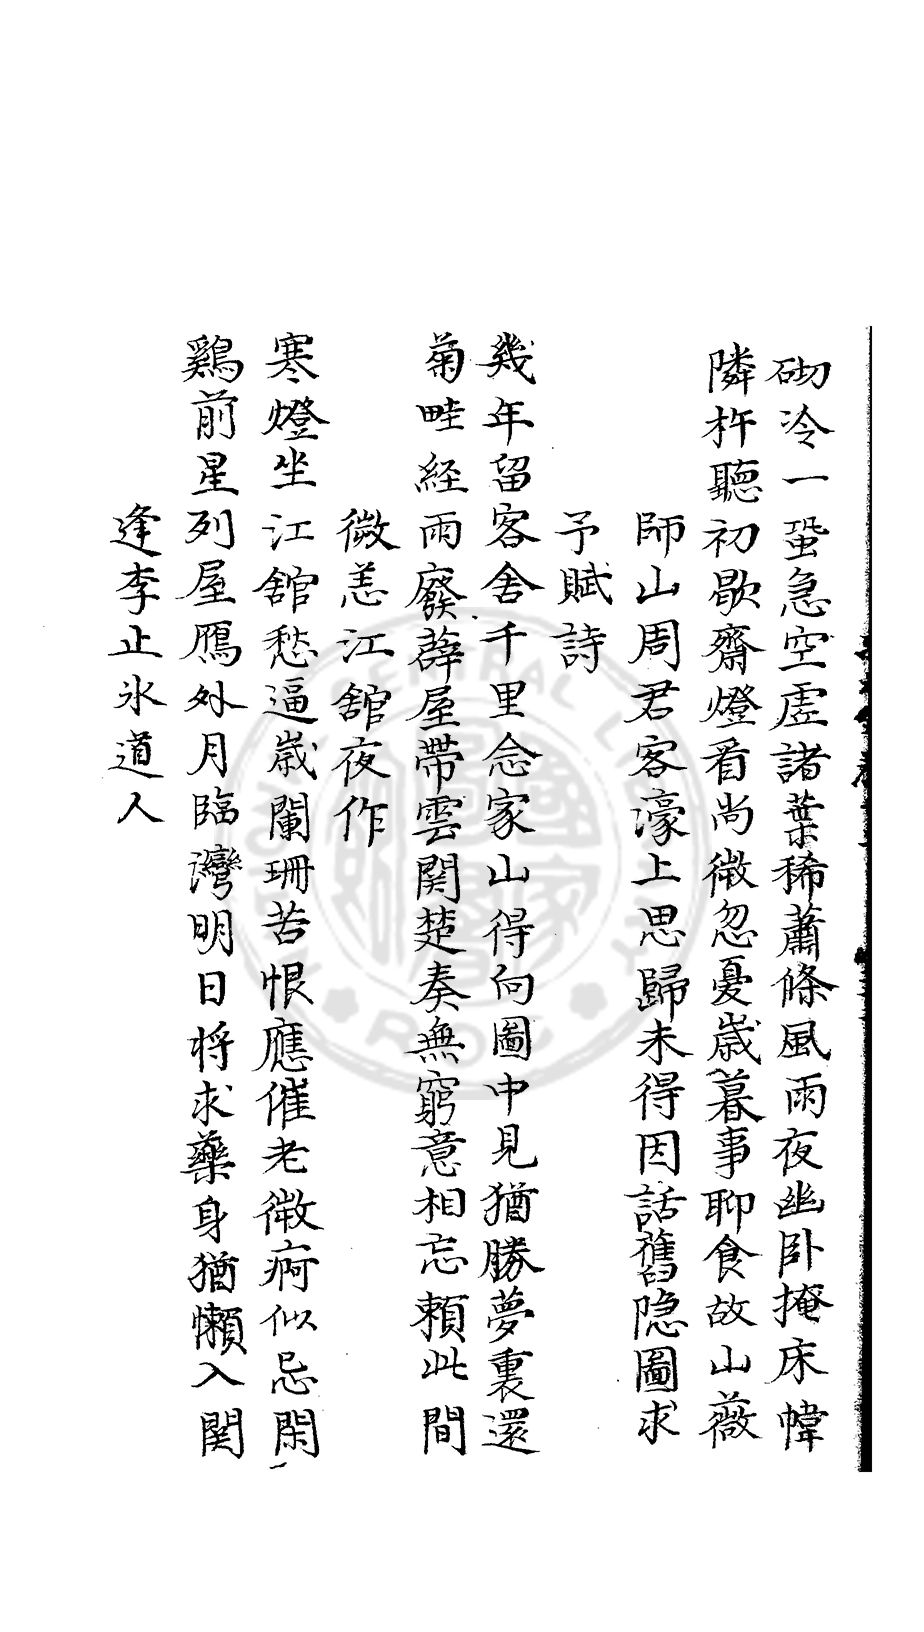 砌冷一蛩急空虛諸葉稀蕭條風雨夜幽卧掩床幃
隣杵聽初歇齋燈看尚微忽憂歲暮事聊食故山薇
師山周君客濠上思歸未得因話舊隐圖求
予賦詩
幾年留客舍千里念家山得向圖中見猶勝夢裏還
菊畦経雨廢薜屋帶雲関楚奏無窮意相忘頼此間
微恙江舘夜作
寒燈坐江舘愁逼歲闌珊苦恨應催老微痾似忌閑
鷄前星列屋鴈外月臨灣明日将求藥身猶懶入関
逢李止氷道人